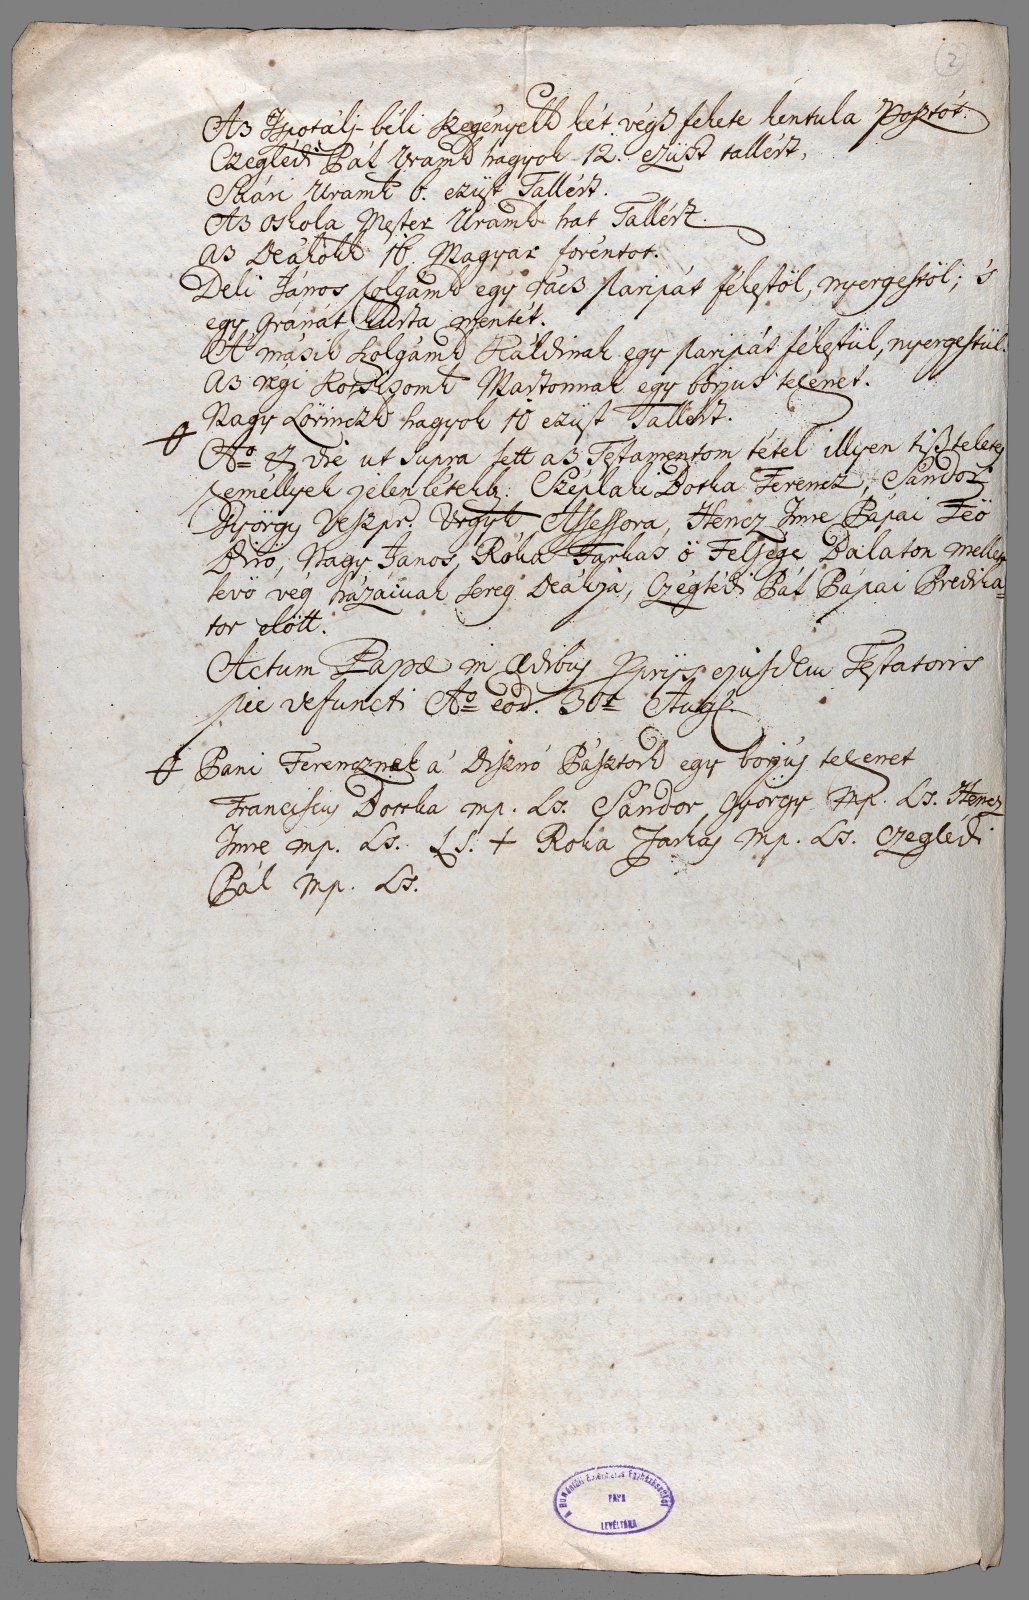 2
Az Ispotálj-béli szegényekk két végß fekete kentula Posztót.
Czeglédi Pál Uramk hagyok 12. ezüst tallért,
Skári Uramk 6. ezüst Tallért.
Az oskola Mester Uramk hat Tallért.
az Deákokk 16. Magyar forentot.
Deli János szolgámk egy rácz paripát féketöl, nyergestöl; s
egy gránát kurta mentét.
A másik szolgámk Káldinak egy paripát féketül, nyergestül.
Az régi kocsisomk Martonnak egy borjus tehenet.
Nagy Lörinczk hagyok 10 ezüst Tallért.
Ao et die ut supra lett az Testamentom tétel illyen tißteletes
személlyek jelenlétekb. Széplaki Botka Ferencz, Sándor
György Veszpr. Vrgyk Assessora, Hencz Imre Pápai Fö
Biró, Nagy János, Roka Farkas ö Felsége Balaton mellet
levö vég házaivak sereg Deákja, Czeglédi Pál Pápai Predika=
tor elött.
Actum Papæ in ædibus ejusdem Testatoris
pie defuncti Ao eod. 30a Aug.
Pani Ferencznek a Diszno Pásztork egy borjus tehenet
Franciscus Bottka mp. Ls. Sándor György Mp. Ls. Hencz
Imre mp. Ls. LS. + Roka Farkas Mp. Ls. Czeglédi
Pál Mp. Ls.
A Dunántúli Református Egyházkerület
PÁPA
LEVÉLTÁRA